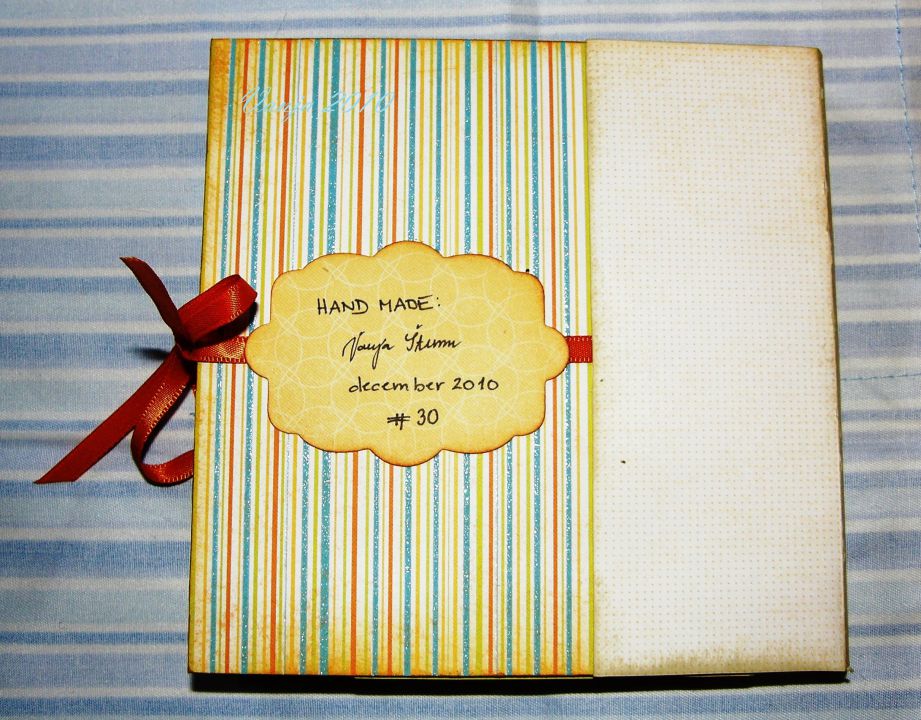 2010
HAND MADE:
Vanja Šturm
december 2010
# 30